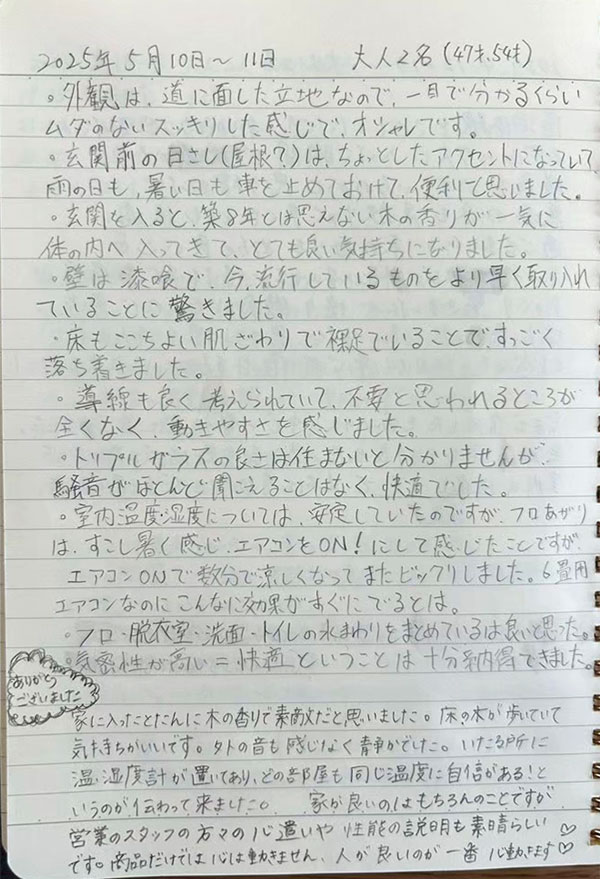 2025年5月10日～11日　大人2名（47才、54才）
。外観は、道に面した立地なので、一目で分かるくらい
ムダのないスッキリした感じで、オシャレです。
・玄関前の日さし(屋根？)は、ちょっとしたアクセントになっていて、
雨の日も、暑い日も車を止めておけて、便利と思いました。
・玄関を入ると、築8年とは思えない木の香りが一気に
体の内へ入ってきて、とても良い気持ちになりました。
・壁は漆喰で、今、流行しているものをより早く取り入れ
ていることに驚きました。
・床もここちよい肌ざわりで裸足でいることで、すっごく
落ち着きました。
・導線も良く考えられていて、不要と思われるところが
全くなく、動きやすさを感じました。
・トリプルガラスの良さは住まないと分かりませんが、
騒音がほとんど聞こえることはなく、快適でした。
・室内温度湿度については、安定していたのですが、フロあがり
は、すこし暑く感じ、エアコンをON！にして感じたことですが、
エアコンONで数分で涼しくなってまたビックリしました。6畳用
エアコンなのにこんなに効果がすぐにでるとは。
・フロ・脱衣室・洗面・トイレの水まわりをまとめているは良いと思った。
・気密性が高い＝快適ということは十分納得できました。
ありがとう
ございました
家に入ったとたんに木の香りで素敵だと思いました。床の木が歩いていて
気持ちがいいです。外の音も感じなく静かでした。いたる所に
温・湿度計が置いてあり、どの部屋も同じ温度に自信がある！と
いうのが伝わって来ました。　家が良いのはもちろんのことですが
営業のスタッフの方々の心遣いや性能の説明も素晴らしい
です。商品だけでは心は動きません、人が良いのが一番心動きます♡